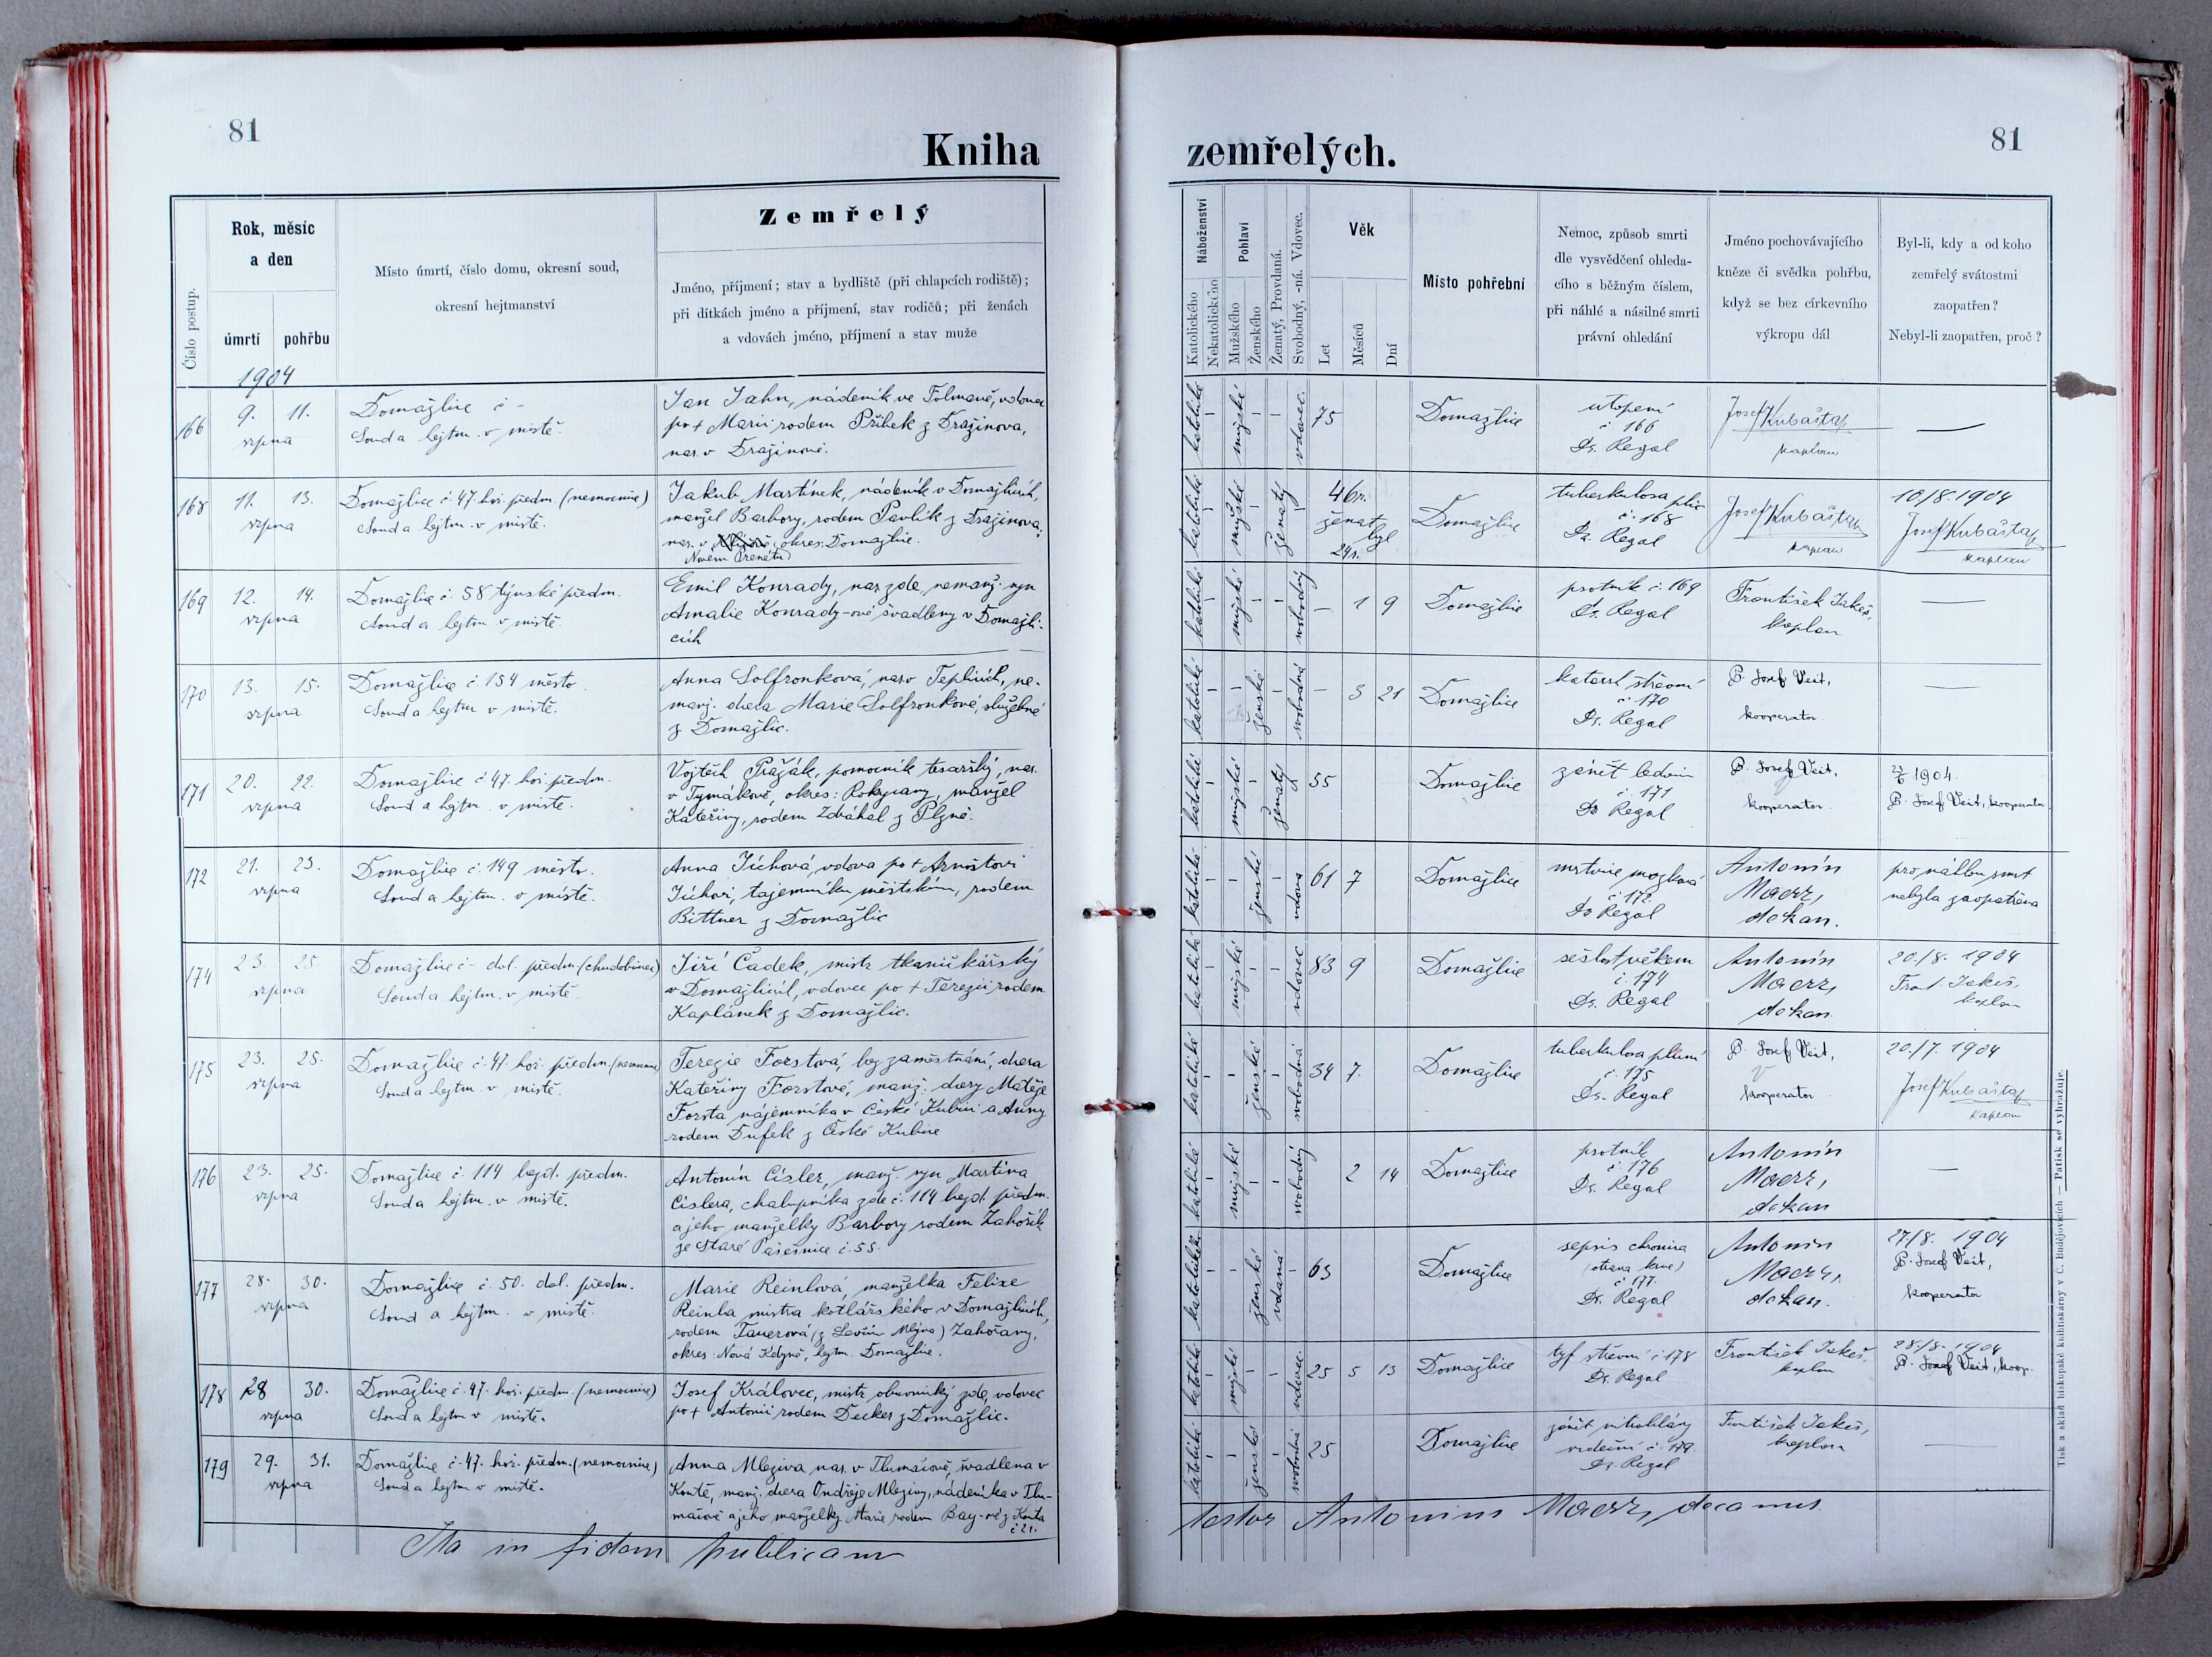 81
Kniha
Číslo postup.
Rok, měsíc
a den
úmrtí
pohřbu
Místo úmrtí, číslo domu, okresní soud,
okresní hejtmanství
Zemřelý
Jméno, příjmení; stav a bydliště (při chlapcích rodiště);
při dítkách jméno a příjmení, stav rodičů; při ženách
a vdovách jméno, příjmení a stav muže
1904
166
9. 11.
srpna
Domažlice č –
Soud a hejtm. v místě.
Jan Jahn, nádeník ve Folmavě, vdovec
po + Marii rodem Příbek z Dražinova,
nar. v Dražinově.
168
11. 13.
srpna
Domažlice č. 47 hoř. předm. (nemocnice)
Soud a hejtm. v místě.
Jakub Martínek, nádeník v Domažlicích,
manžel Barbory, rodem Pavlík z Dražinova,
nar. v okres: Domažlice.
Novém
169
12. 14.
srpna
Domažlice č. 58 týnské předm.
Soud a hejtm. v místě.
Emil Konrady, nar. zde, nemanž. syn
Amalie Konrady-ové švadleny v Domažli-
cích
170
13. 15.
srpna
Domažlice č. 154 město
Soud a hejtm v místě.
Anna Solfronková, nar. v Teplicích, ne-
manž. dcera Marie Solfronkové, služebné
z Domažlic.
171
20. 22.
srpna
Domažlice č 47. hoř. předm.
Soud a hejtm. v místě.
Vojtěch Pražák, pomocník tesařský, nar.
v Tymákově, okres: Rokycany, manžel
Kateřiny, rodem Zdráhal z Plzně.
172
21. 23.
srpna
Domažlice č. 149 město.
Soud a hejtm. v místě.
Anna Jíchová, vdova po + Arnoštovi
Jíchovi, tajemníku městském, rodem
Bittner z Domažlic
174
23. 25
srpna
Domažlice č – dol. předm. (chudobinec)
Soud a hejtm. v místě.
Jiří Čadek, mistr tkaničkářský
v Domažlicích, vdovec po + Terezii rodem
Kaplánek z Domažlic.
175
23. 25.
srpna
Domažlice č. 47. hoř. předm. (nemocnice)
Soud a hejtm. v místě.
Terezie Forstová, bez zaměstnání, dcera
Kateřiny Forstové, manž. dcery Matěje
Forsta nájemníka v České Kubici a Anny
rodem Dufek z České Kubice
176
23. 25.
srpna
Domažlice č. 114 bezd. předm.
Soud a hejtm. v místě.
Antonín Císler, manž. syn Martina
Císlera, chalupníka zde č. 114 bezd. předm.
a jeho manželky Barbory rodem Zahořík
ze Staré Pasečnice č. 55.
177
28. 30.
srpna
Domažlice č. 50. dol. předm.
Soud a hejtm. v místě.
Marie Reinlová, manželka Felixe
Reinla mistra kotlářského v Domažlicích,
rodem Tauerová (z Mlýna) Zahořany,
okres: Nová Kdyně, hejtm. Domažlice.
178
28 30.
srpna
Domažlice č. 47. hoř. předm. (nemocnice)
Soud a hejtm v místě.
Josef Královec, mistr obuvnický zde, vdovec
po + Antonii rodem Decker z Domažlic.
179
29. 31.
srpna
Domažlice č. 47. hoř. předm. (nemocnice)
Soud a hejtm v místě.
Anna Mleziva nar. v Tlumačově, švadlena v
Koutě, manž. dcera Ondřeje Mlezivy, nádeníka v Tlu-
mačově a jeho manželky Marie rodem Bay-ové z Kouta
č 21.
Ita in fidem publicam
zemřelých.
81
Náboženství
Katolického
Nekatolického
Pohlaví
Mužského
Ženského
Ženatý, Provdaná.
Svobodný, -ná. Vdovec.
Věk
Let
Měsíců
Dní
Místo pohřební
Nemoc, způsob smrti
dle vysvědčení ohleda-
cího s běžným číslem,
při náhlé a násilné smrti
právní ohledání
Jméno pochovávajícího
kněze či svědka pohřbu,
když se bez církevního
výkropu dál
Byl-li, kdy a od koho
zemřelý svátostmi
zaopatřen?
Nebyl-li zaopatřen, proč?
katolické mužské vdovec. 75
Domažlice
utopení
č. 166
Dr. Regal
Josef Kubašta
kaplan
—
katolické mužské ženatý
46 r.
ženat
byl
24 r.
Domažlice
tuberkulosa plic
č. 168
Dr. Regal
Josef Kubašta
kaplan
10./8. 1904
Josef Kubašta
kaplan
katolické mužské svobodný – 1 9
Domažlice
psotník č. 169
Dr. Regal
František Jakeš,
kaplan
—
katolické ženské svobodná – 3 21
Domažlice
katarrh střevní
č 170
Dr. Regal
P. Josef Veit,
kooperator.
—
katolické mužské ženatý 55
Domažlice
zánět ledvin
č. 171
Dr Regal
P. Josef Veit,
kooperator.
1904.
P. Josef Veit, kooperator.
katolické ženské vdova 61 7
Domažlice
mrtvice mozková
č 172.
Dr Regal
Antonín
Maerz,
děkan.
pro náhlou smrt
nebyla zaopatřena
katolické mužské vdovec 83 9
Domažlice
sešlost věkem
č. 174
Dr. Regal
Antonín
Maerz,
děkan.
20./8. 1904
Frant. Jakeš,
kaplan
katolické ženské svobodná 34 7.
Domažlice
tuberkulosa plicní
č. 175
Dr. Regal
P. Josef Veit,
kooperator
20./7. 1904
Josef Kubašta
kaplan
katolické mužské svobodný 2 14
Domažlice
psotník
č 176
Dr. Regal
Antonín
Maerz,
děkan
—
katolické ženské vdaná 63
Domažlice
sepsis chronica
(otrava krve)
č 177.
Dr. Regal
Antonín
Maerz,
děkan.
27./8. 1904
P. Josef Veit,
kooperator
katolické mužské vdovec. 25 5 13
Domažlice
tyf střevní č 178
Dr. Regal
František Jakeš,
kaplan
28./8. 1904
P. Josef Veit, koop.
katolické ženské svobodná 25
Domažlice
zánět
srdeční č. 179.
Dr. Regal
František Jakeš,
kaplan
—
testor Antonius Maerz, decanus
Tisk a sklad biskupské knihtiskárny v Č. Budějovicích — Patisk se vyhražuje.